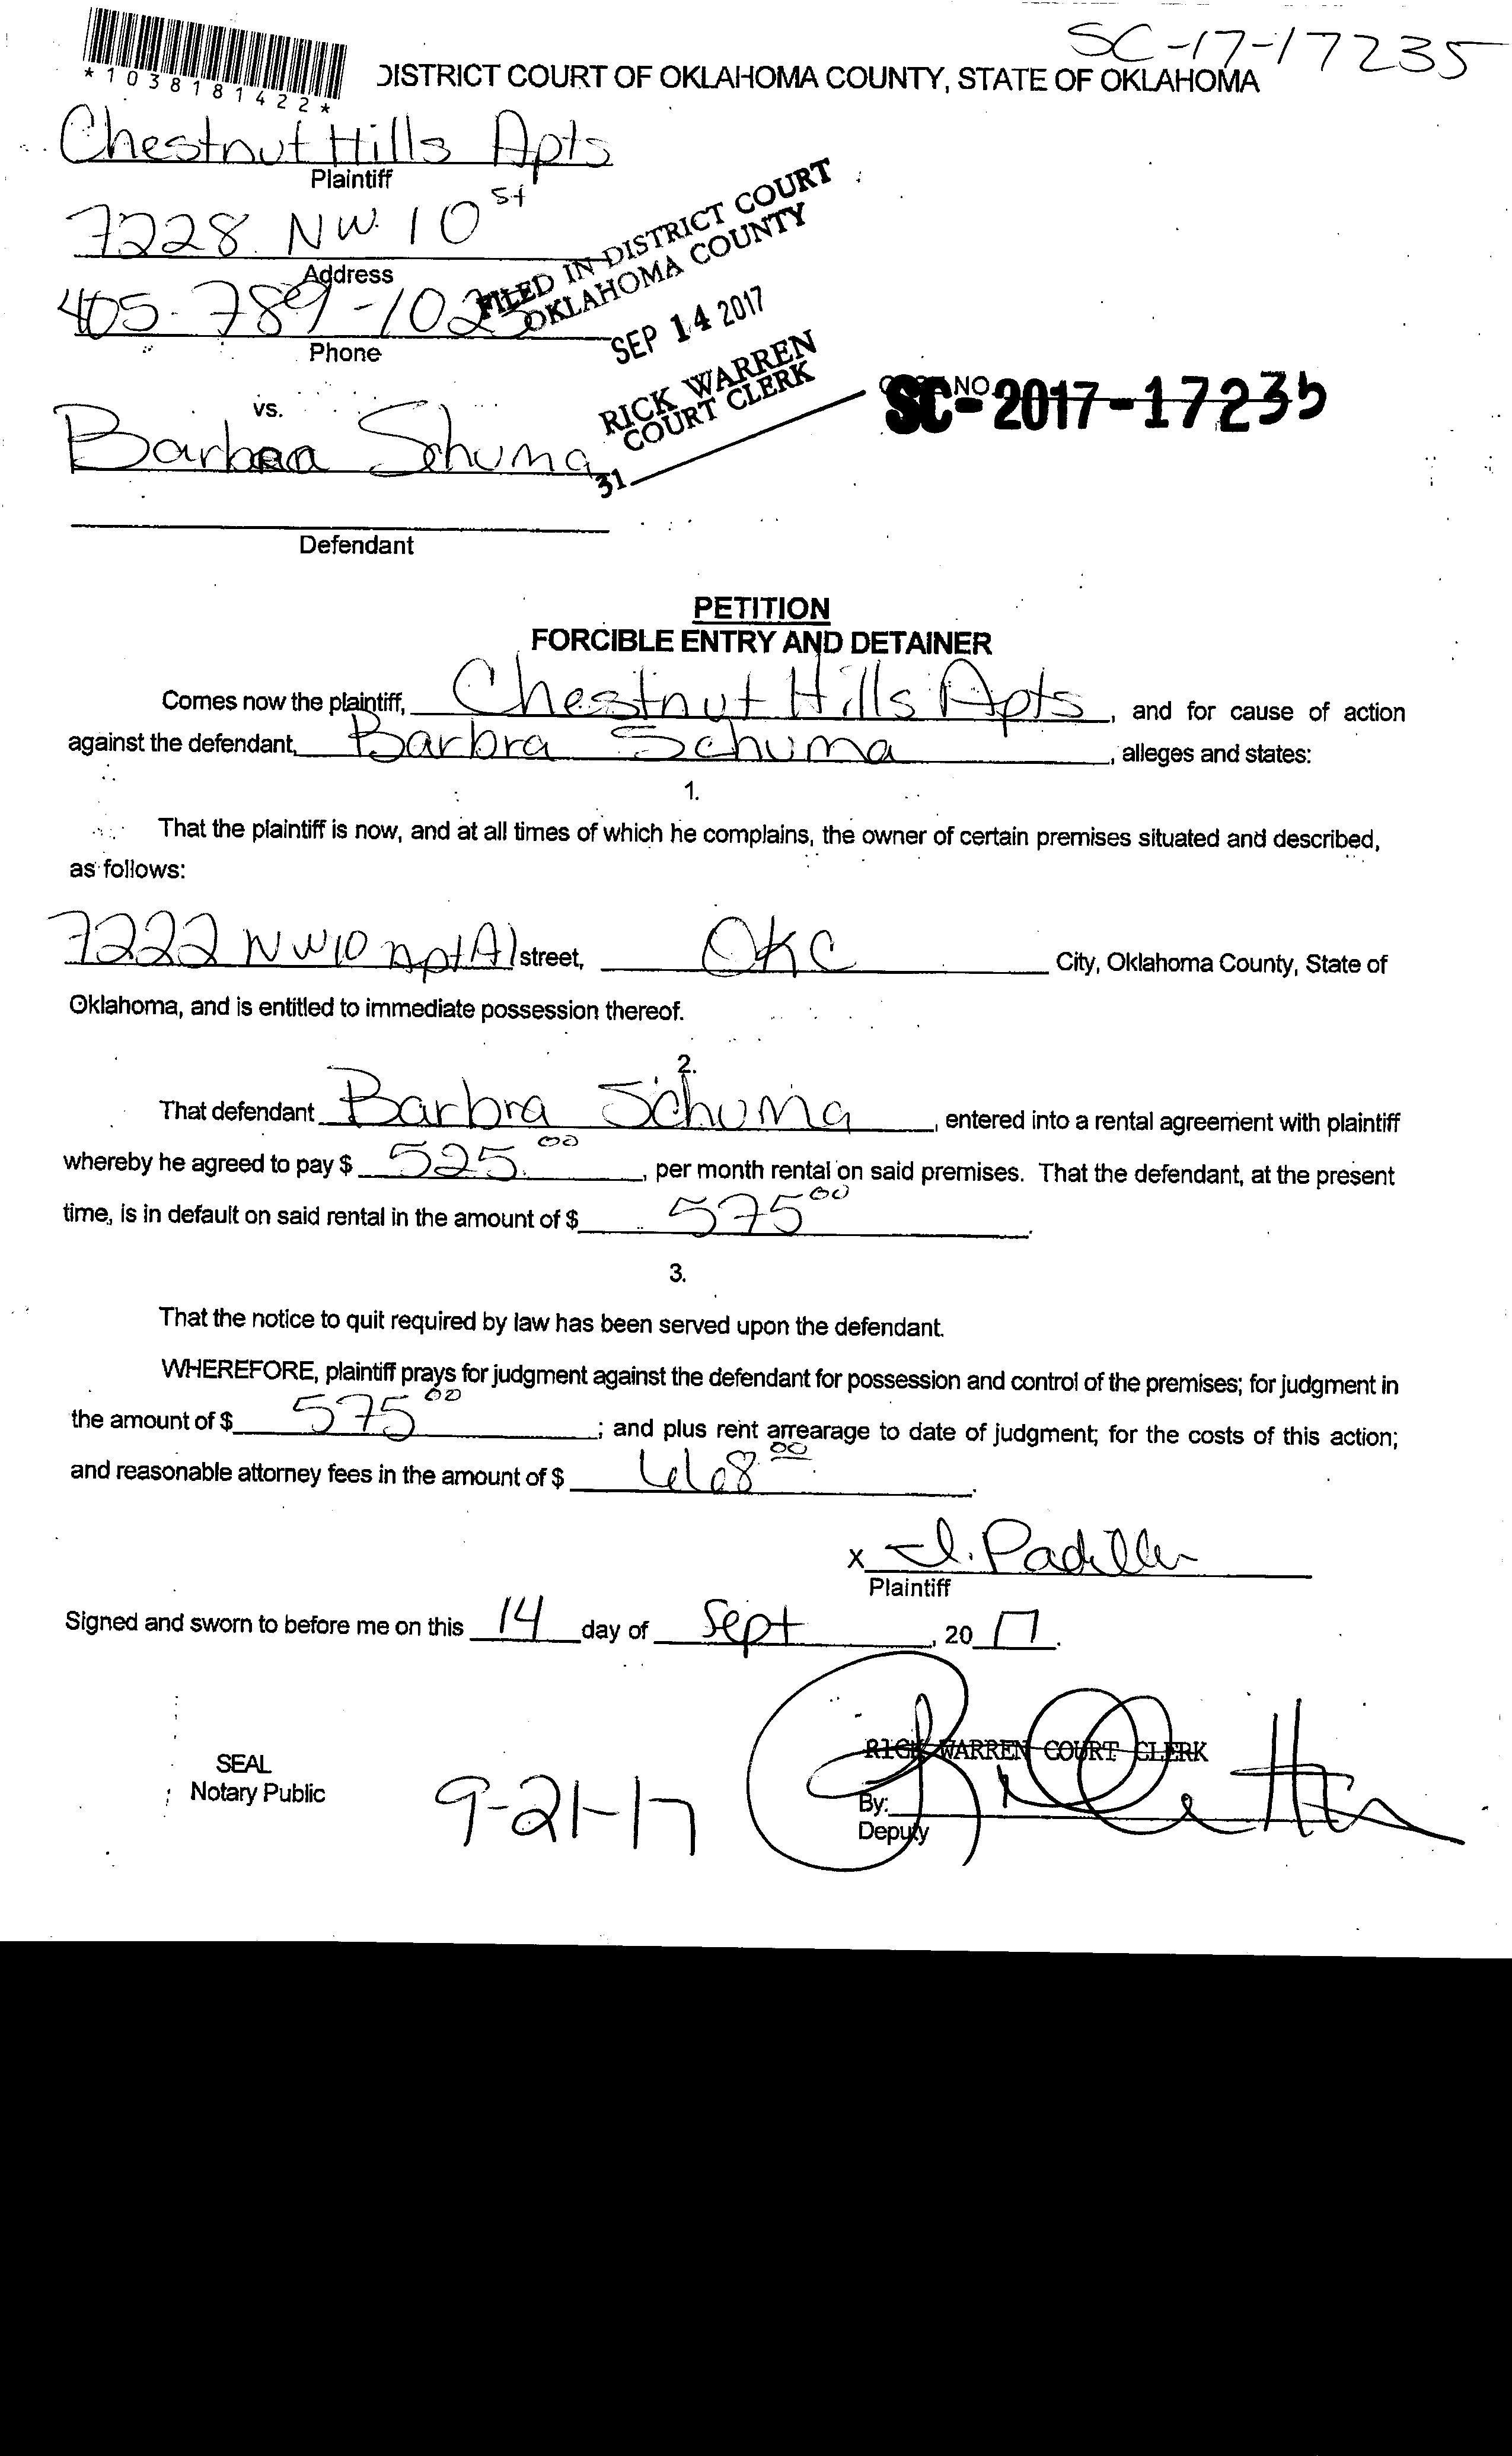 SC-17-17235
*1038181422*
DISTRICT COURT OF OKLAHOMA COUNTY, STATE OF OKLAHOMA
Chestnut Hills Apts
Plaintiff
7228 NW 10 St
Address
405-789-102
Phone
FILED IN DISTRICT COURT
OKLAHOMA COUNTY
SEP 14 2017
RICK WARREN
COURT CLERK
31
NO.
SC-2017-17235
vs.
Barbra Schuma
Defendant
PETITION
FORCIBLE ENTRY AND DETAINER
Comes now the plaintiff, Chestnut Hills Apts, and for cause of action
against the defendant, Barbra Schuma, alleges and states:
1.
That the plaintiff is now, and at all times of which he complains, the owner of certain premises situated and described,
as follows:
7222 NW10 Apt A1 street, OKC City, Oklahoma County, State of
Oklahoma, and is entitled to immediate possession thereof.
2.
That defendant Barbra Schuma, entered into a rental agreement with plaintiff
whereby he agreed to pay $ 525.00, per month rental on said premises. That the defendant, at the present
time, is in default on said rental in the amount of $ 575 00.
3.
That the notice to quit required by law has been served upon the defendant.
WHEREFORE, plaintiff prays for judgment against the defendant for possession and control of the premises; for judgment in
the amount of $ 575 00; and plus rent arrearage to date of judgment; for the costs of this action;
and reasonable attorney fees in the amount of $ 00.
x I. Padilla
Plaintiff
Signed and sworn to before me on this 14 day of Sept, 20 17.
RICK WARREN COURT CLERK
SEAL
Notary Public
9-21-17
By:
Deputy